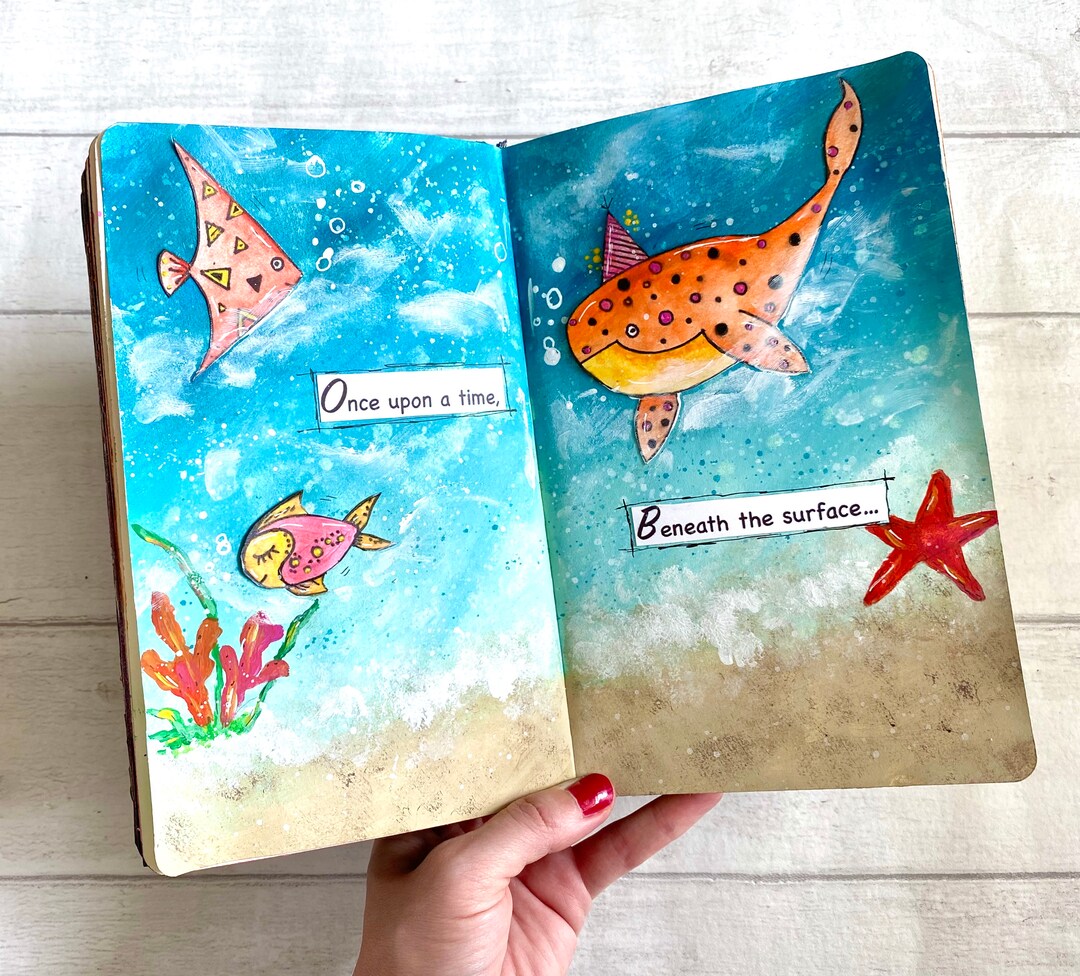 Once upon a time,
Beneath the surface...